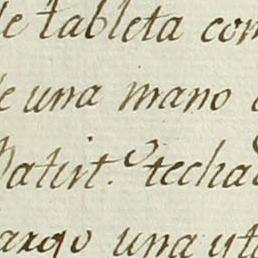 de tableta com
de una mano
Patirt.º techa
largo una yta